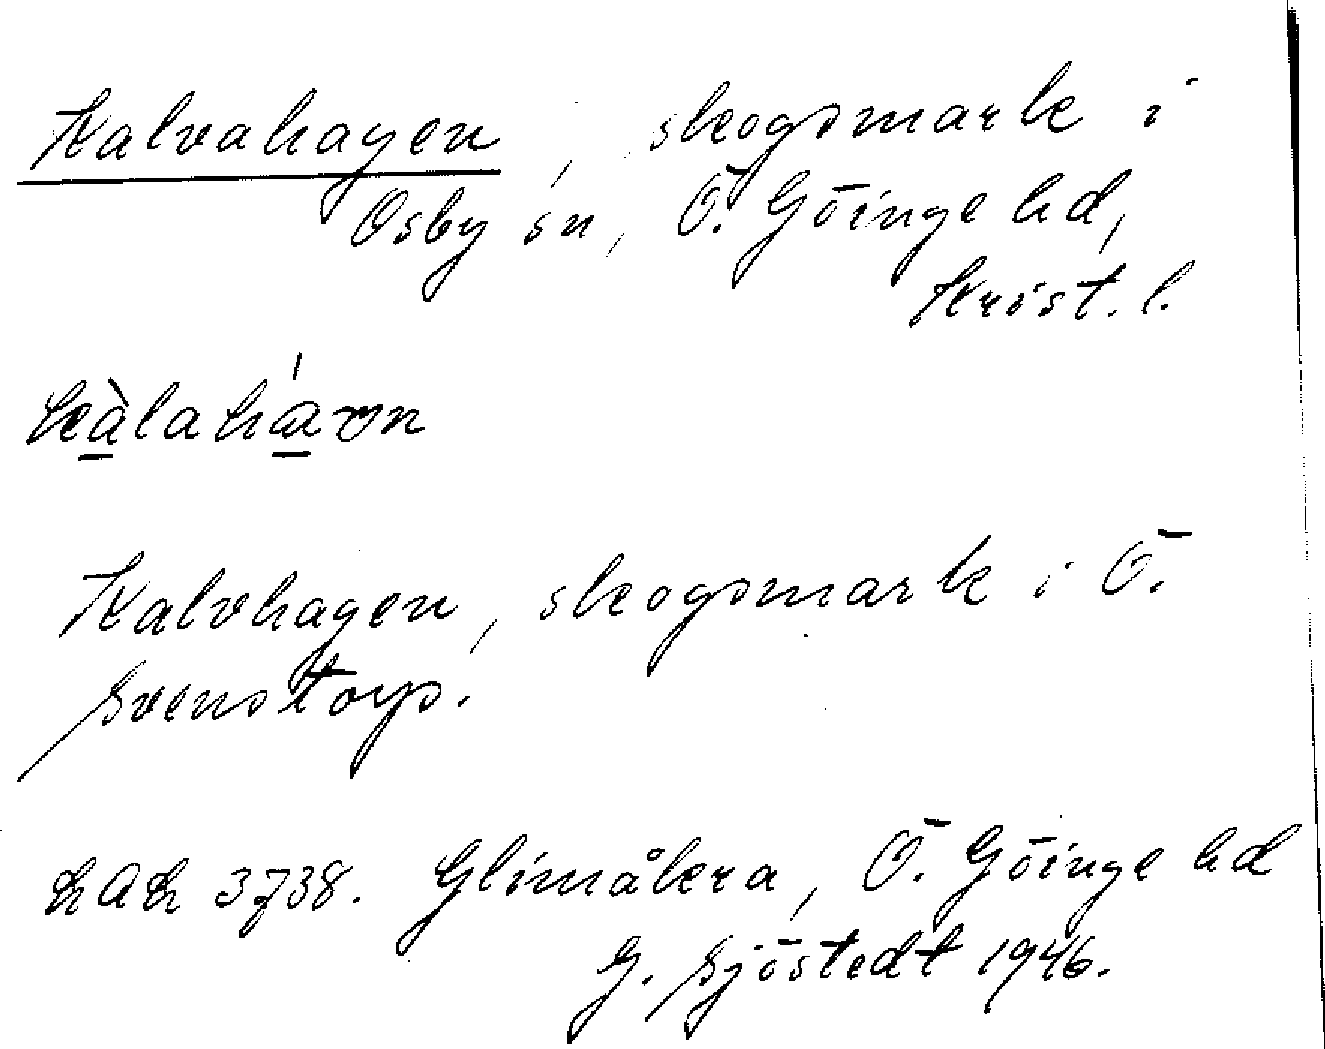 Kalvahagen, skogsmark i
Osby sn, Ö. Göinge hd,
Krist. l.
kàlahávn
Kalvhagen, skogsmark i Ö.
Svenstorp.
LAL 3738. Glimåkra, Ö. Göinge hd
G. Sjöstedt 1946.